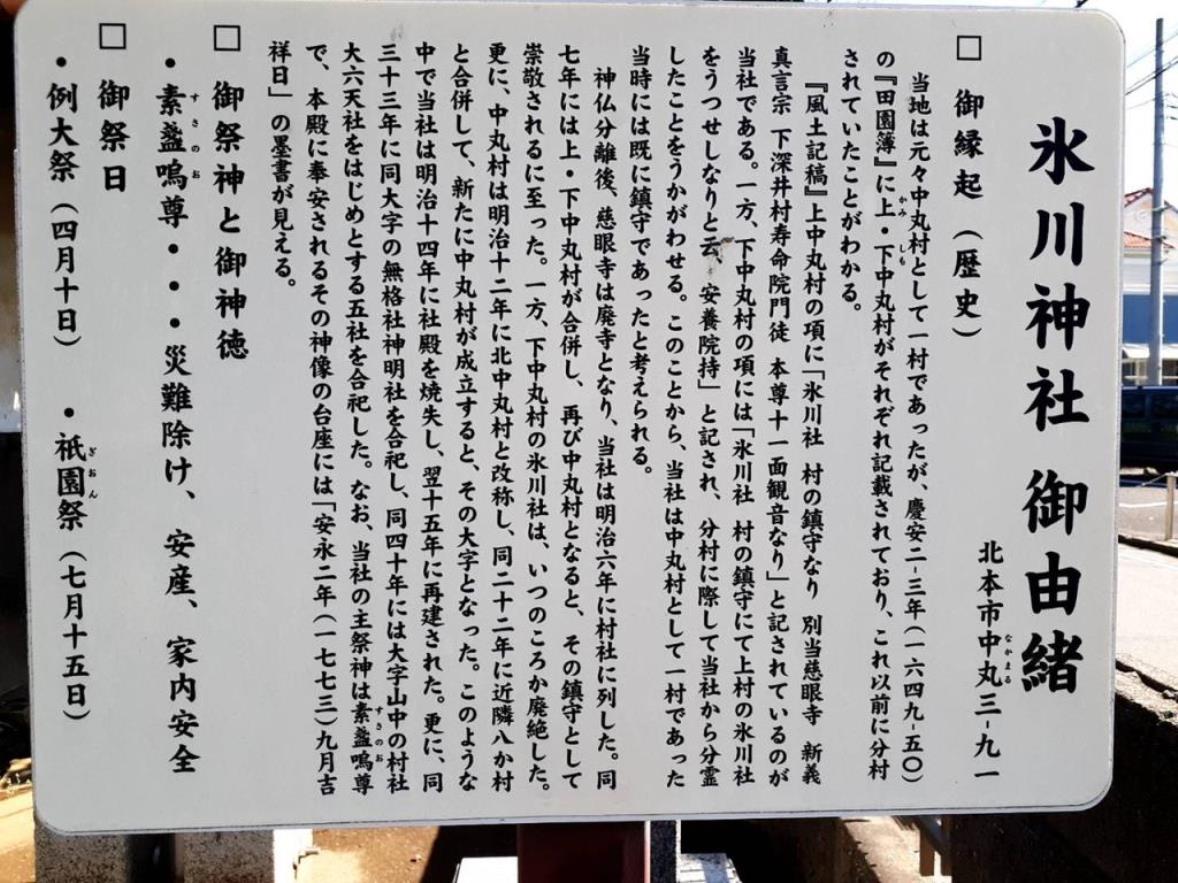 氷川神社 御由緒
北本市中丸三-九一
なかまる
□ 御縁起（歴史）
当地は元々中丸村として一村であったが、慶安二-三年（一六四九-五〇）
の『田園簿』に上・下中丸村がそれぞれ記載されており、これ以前に分村
かみ しも
されていたことがわかる。
『風土記稿』上中丸村の項に「氷川社 村の鎮守なり 別当慈眼寺 新義
真言宗 下深井村寿命院門徒 本尊十一面観音なり」と記されているのが
当社である。一方、下中丸村の項には「氷川社 村の鎮守にて上村の氷川社
をうつせしなりと云、安養院持」と記され、分村に際して当社から分霊
したことをうかがわせる。このことから、当社は中丸村として一村であった
当時には既に鎮守であったと考えられる。
神仏分離後、慈眼寺は廃寺となり、当社は明治六年に村社に列した。同
七年には上・下中丸村が合併し、再び中丸村となると、その鎮守として
崇敬されるに至った。一方、下中丸村の氷川社は、いつのころか廃絶した。
更に、中丸村は明治十二年に北中丸村と改称し、同二十二年に近隣八か村
と合併して、新たに中丸村が成立すると、その大字となった。このような
中で当社は明治十四年に社殿を焼失し、翌十五年に再建された。更に、同
三十三年に同大字の無格社神明社を合祀し、同四十年には大字山中の村社
大六天社をはじめとする五社を合祀した。なお、当社の主祭神は素盞嗚尊
すさのお
で、本殿に奉安されるその神像の台座には「安永二年（一七七三）九月吉
祥日」の墨書が見える。
□ 御祭神と御神徳
・素盞嗚尊・・・災難除け、安産、家内安全
すさのお
□ 御祭日
・例大祭（四月十日） ・祇園祭（七月十五日）
ぎおん